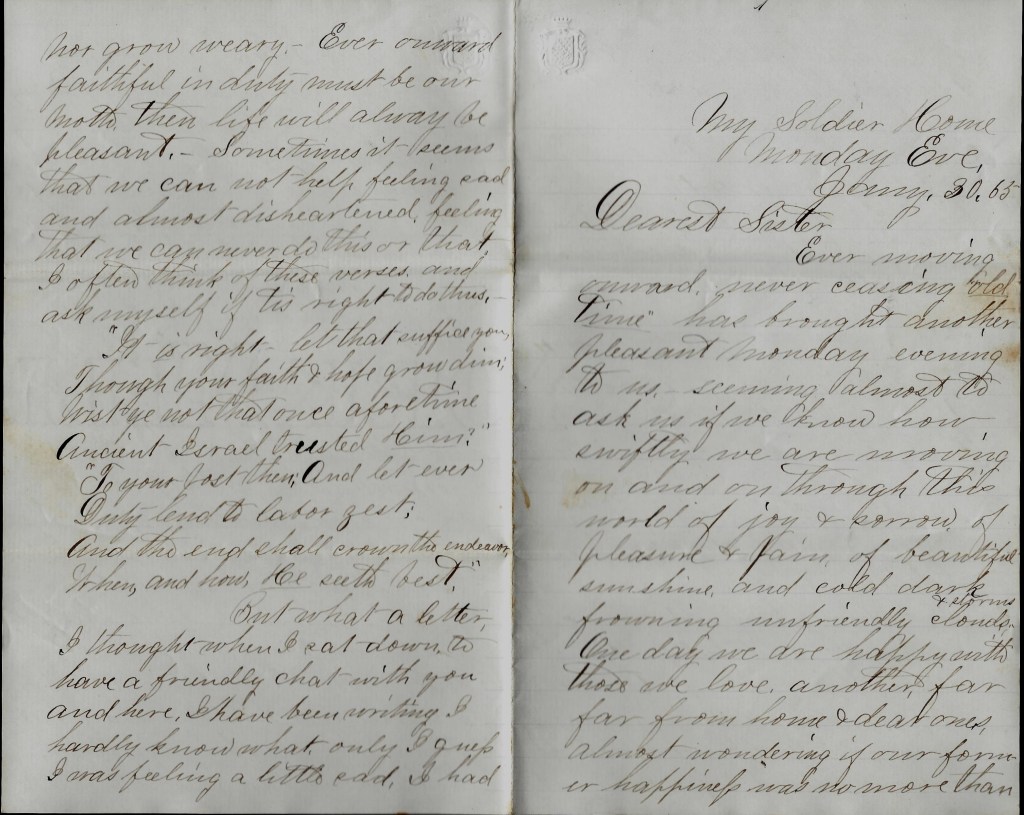 nor grow weary,- Ever onward
faithful in duty must be our
motto, then life will alway be
pleasant.- Sometimes it seems
that we can not help feeling sad
and almost disheartened, feeling
that we can never do this or that,
I often think of these verses, and
ask myself if tis right to do thus,-
"It is right- let that suffice you,
Though your faith & hope grow dim;
Wist ye not that once aforetime
Ancient Israel trusted Him?"
"To your post then; And let ever
Duty lend to labor zest;
And the end shall crown the endeavor,
When, and how, He seeth best."
But what a letter,
I thought when I sat down to
have a friendly chat with you
and here, I have been writing I
hardly know what, only I guess
I was feeling a little sad, I had
My Soldier Home
Monday Eve,
Jany, 30, 65
Dearest Sister
Ever moving
onward, never ceasing "old
Time" has brought another
pleasant Monday evening
to us,- seeming almost to
ask us if we know how
swiftly we are moving
on and on through this
world of joy & sorrow, of
pleasure & pain, of beautiful
sunshine, and cold dark
frowning unfriendly clouds, & storms
One day we are happy with
those we love, another, far
far from home & dear ones,
almost wondering if our form-
er happiness was no more than